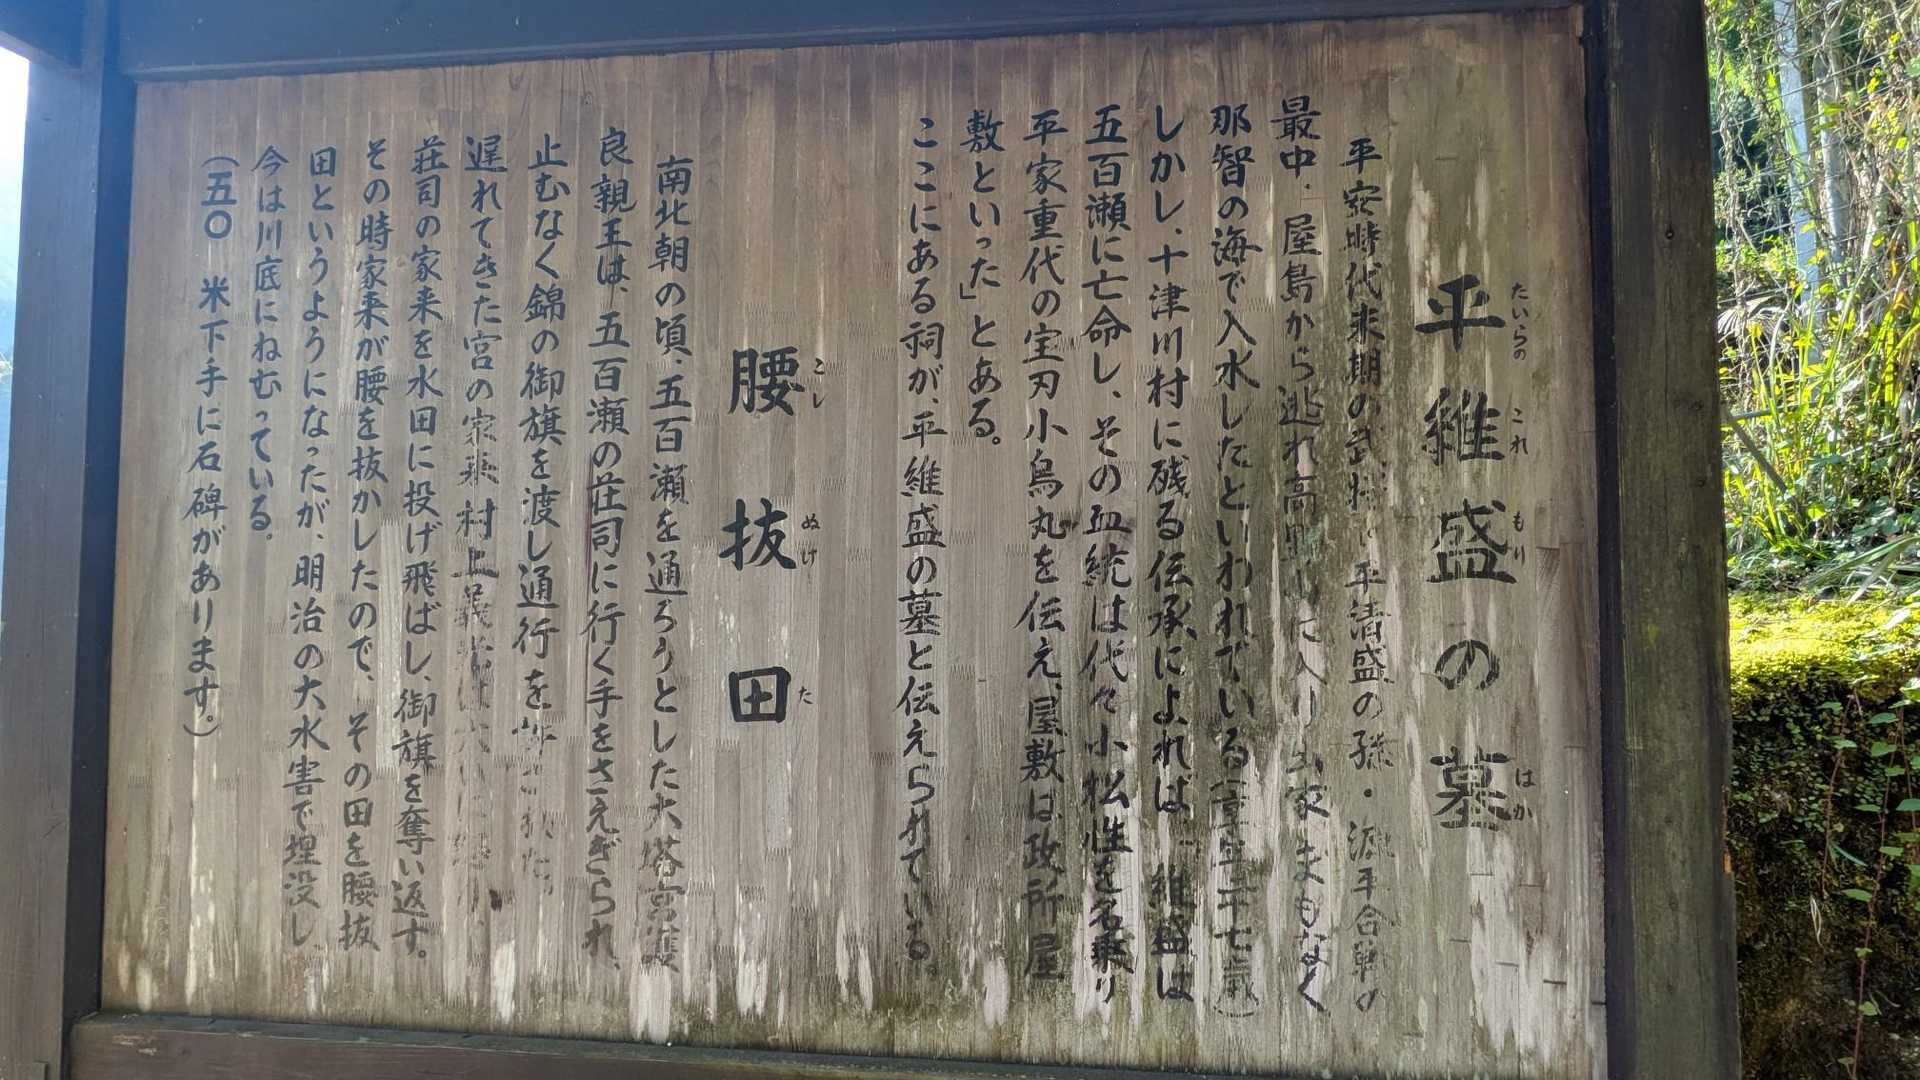 平維盛の墓
たいらの これ もり はか
平安時代末期の武将 平清盛の孫・源平合戦の
最中、屋島から逃れ高野 に入り出家 まもなく
那智の海で入水したといわれている(享年二十七歳)
しかし、十津川村に残る伝承によれば、維盛は
五百瀬に亡命し、その血統は代々小松性を名乗り
平家重代の宝刃小烏丸を伝え、屋敷は政所屋
敷といった」とある。
ここにある祠が、平維盛の墓と伝えられている。
腰抜田
こし ぬけ た
南北朝の頃、五百瀬を通ろうとした大塔宮護
良親王は、五百瀬の荘司に行く手をさえぎられ、
止むなく錦の御旗を渡し通行を許された。
遅れてきた宮の家来村上義光は大いに怒り、
荘司の家来を水田に投げ飛ばし、御旗を奪い返す。
その時家来が腰を抜かしたので、その田を腰抜
田というようになったが、明治の大水害で埋没し、
今は川底にねむっている。
(五〇 米下手に石碑があります。)